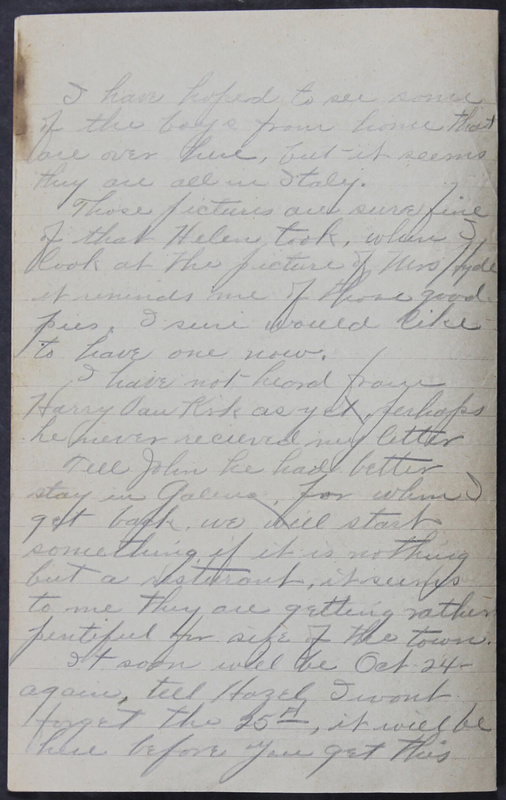 I have hoped to see some
of the boys from home that
are over here, but it seems
they are all in Italy.
Those pictures are sure fine
of that Helen took, when I
look at the picture of Mrs Hyde
it reminds me of those good
pies. I sure would like
to have one now.
I have not heard from
Harry Van Kirk as yet, perhaps
he never recieved my letter
Tell John he had better
stay in Galena, for when I
get back we will start
something if it is nothing
but a resturant, it seems
to me they are getting rather
plentiful for size of the town.
It soon will be Oct 24
again, tell Hazel I wont
forget the 25th, it will be
here before you get this